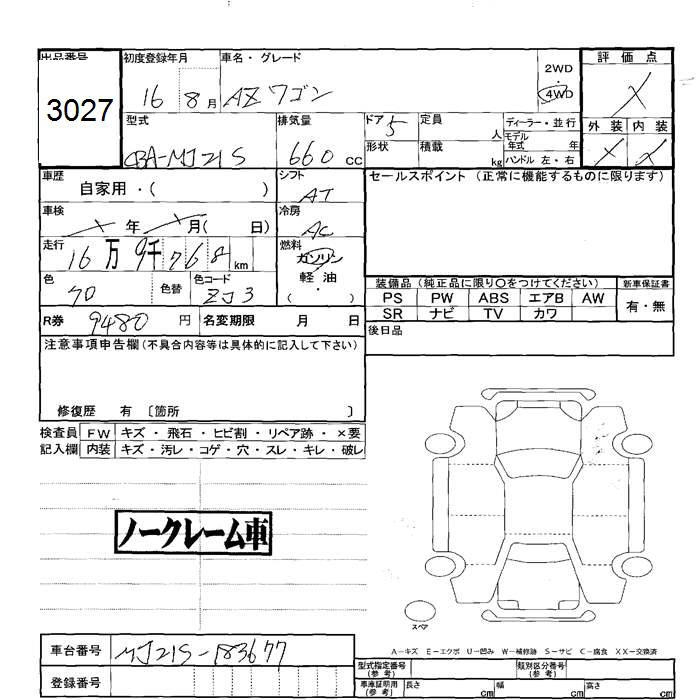 出品番号 初度登録年月 車名・グレード
3027 16 8月 AZ ワゴン 2WD・4WD
評価点
×
型式 排気量 ドア 5 定員 人 ディーラー・並行
CBA-MJ21S 660 cc 形状 積載 kg モデル年式 年
ハンドル 左・右
外装 内装
× ×
車歴 自家用・( ) シフト AT
セールスポイント (正常に機能するものに限ります)
車検 × 年 × 月( 日) 冷房 AC
走行 16万 9千 768 km 燃料 ガソリン
軽油
・
( )
色 色替 色コード ZJ3
装備品(純正品に限り○をつけてください) 新車保証書
PS PW ABS エアB AW 有・無
SR ナビ TV カワ
R券 9480 円 名変期限 月 日
後日品
注意事項申告欄(不具合内容等は具体的に記入して下さい)
修復歴 有 〔箇所 〕
検査員 FW キズ・飛石・ヒビ割・リペア跡・×要
記入欄 内装 キズ・汚レ・コゲ・穴・スレ・キレ・破レ
ノークレーム車
スペア
A-キズ E-エクボ U-凹み W-補修跡 S-サビ C-腐食 XX-交換済
車台番号 MJ21S-183677
登録番号
型式指定番号(参考) 類別区分番号(参考)
車庫証明用(参考) 長さ cm 幅 cm 高さ cm